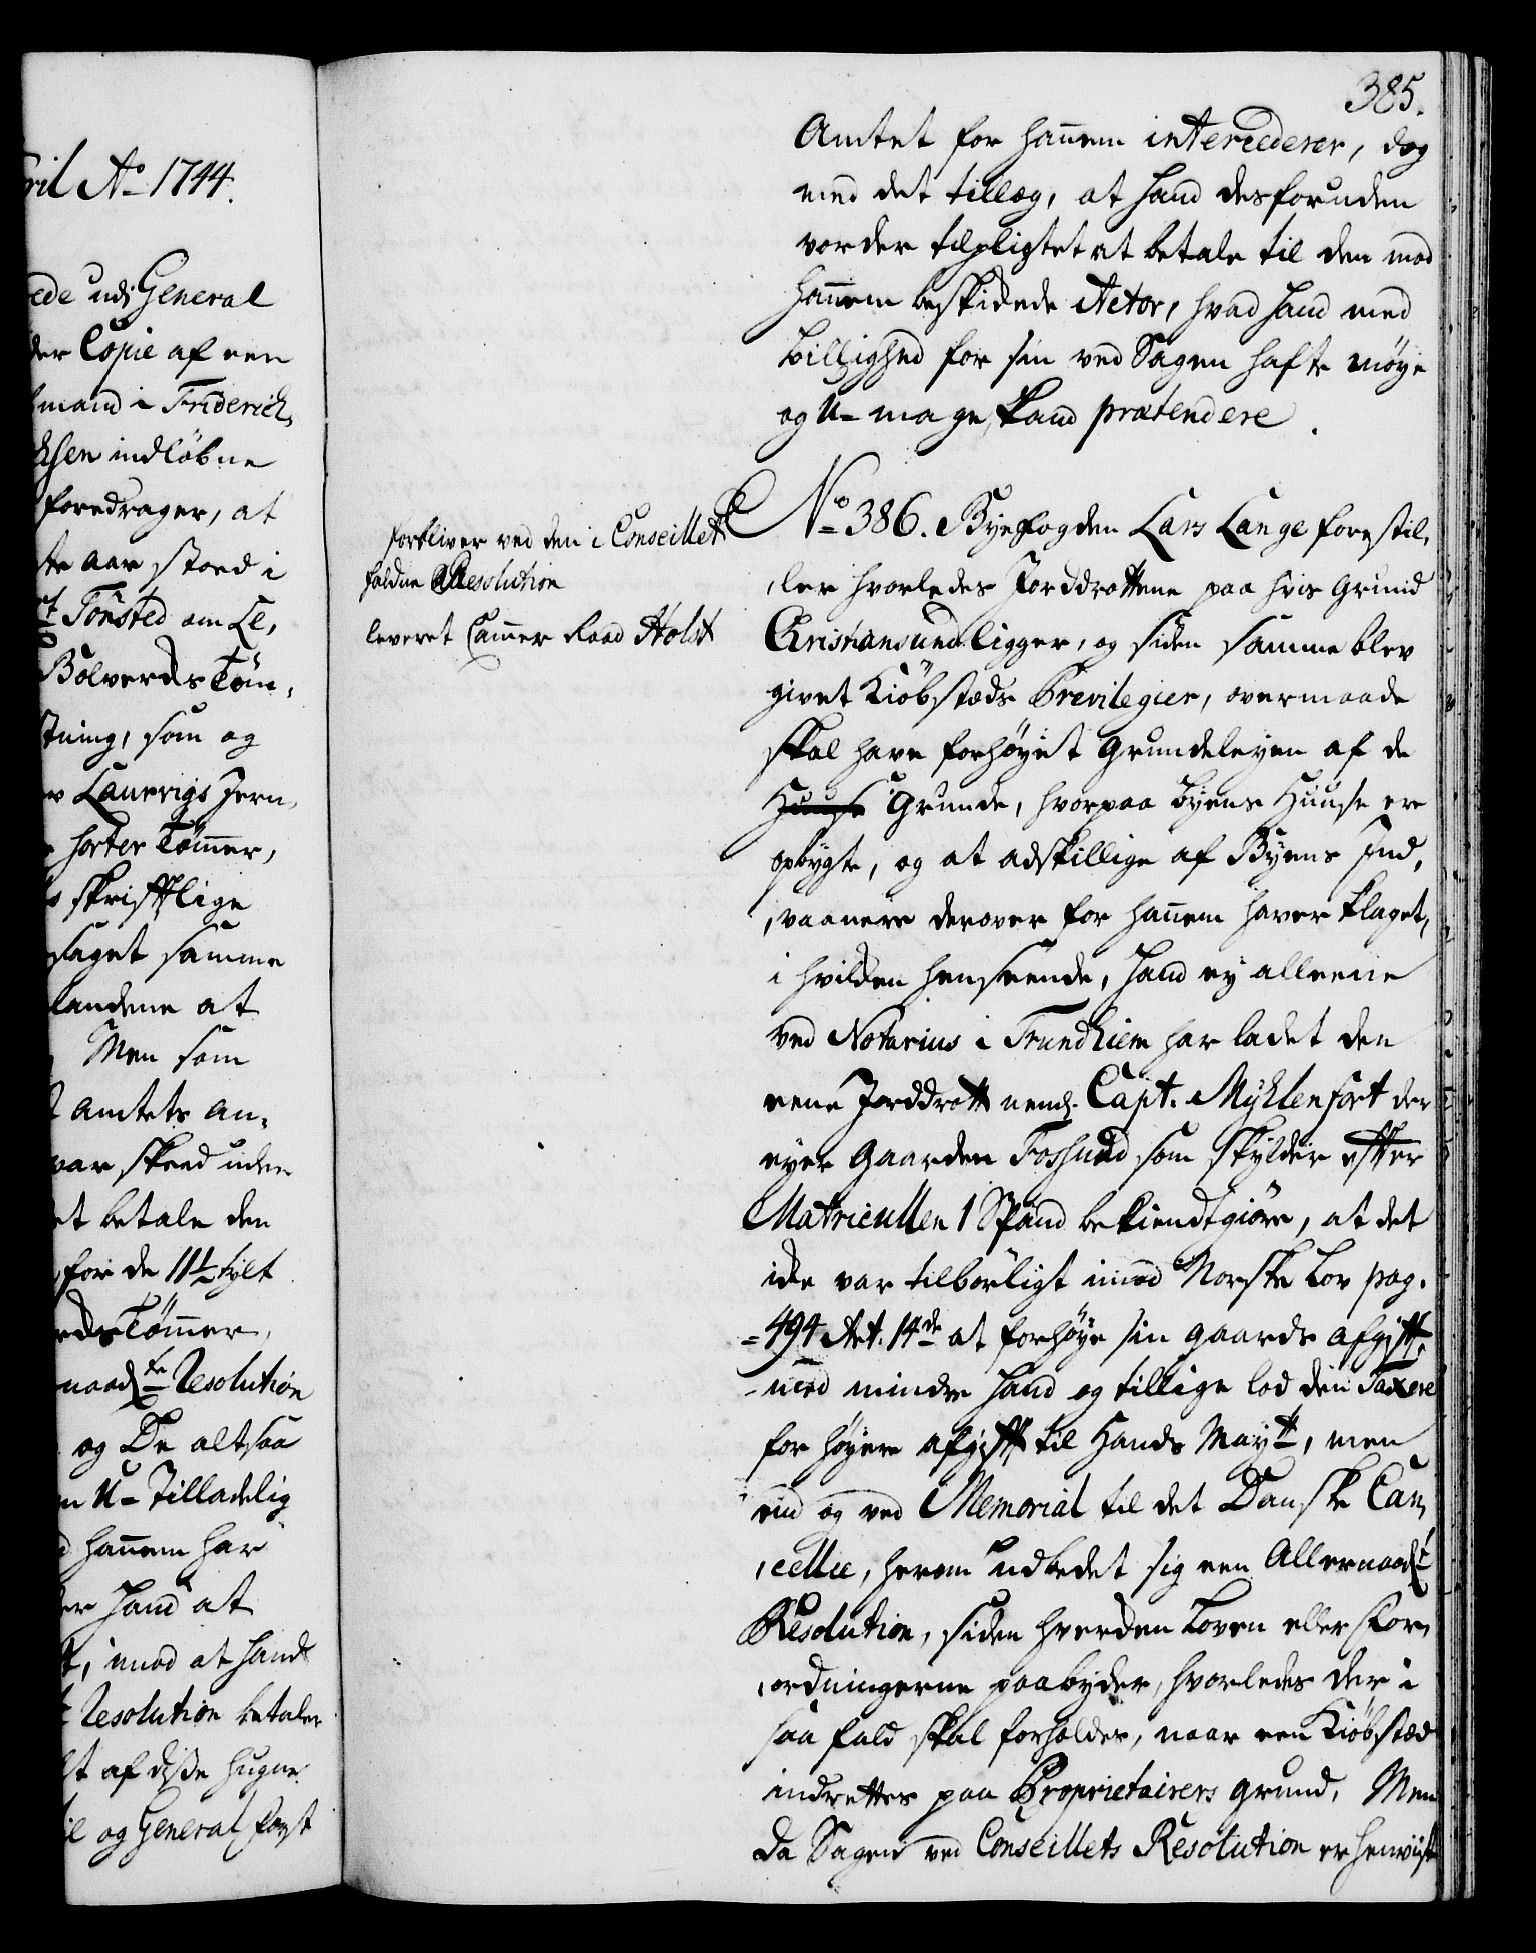 ril Aō 1744.
ede udi General
der Copie af een
mand i Friderich,
ksen indløbne
foredrager, at
te aar stoed i
Tønsted om Le,
Bolverds Tøm,
tning, som og
Laurvigs Jern,
sorter Tømmer,
skrifftlige
saget samme
landene at
Men som
amtets an,
var skeed uden
et betale den
for de 11½ tylt
eds Tømmer,
naadste Resolution
og De altsaa
n U-Tilladelig
hannem har
er hand at
t, imod at hand
Resolution betaler
st af disse hugne
il og General Forst
385.
Amtet for hannem intercederer, dog
med det tillæg, at hand desforuden
vorder tilpligtet at betale til den mod
hannem beskikede Actor, hvad hand med
billighed for sin ved Sagen hafte møye
og U-mage, kand prætendere.
forbliver ved den i Conseillet
faldne Resolution
leveret Cammer Raad Holst
No 386. Byefogden Lars Lange forestil,
,ler hvorledes Jorddrottene paa hvis Grund
Christiansund ligger, og siden samme blev
givet Kiøbstæds Previlegier, overmaade
skal have forhøyet grundeleyen af de
Huuse Grunde, hvorpaa byens Huuse ere
opbygte, og at adskillige af Byens Ind,
,vaanere derover for hannem haver klaget,
i hvilken henseende, hand ey alleene
ved Notarius i Trundhiem har ladet den
eene Jorddrott nemlig Capt. Myhlenfort der
eyer Gaarden Fossund som skylder effter
Matricullen 1 Spand bekiendtgiøre, at det
icke var tilbørligt imod Norske Lov pag.
494 Art. 14de at forhøye sin gaards afgifft,
med mindre hand og tillige lod den Taxere
for høyere afgifft til Hands Maytt, men
end og ved Memorial til det Danske Can,
,cellie, herom udbedet sig een Allernaadst
Resolution, siden hverken Loven eller For,
,ordningerne paabyder, hvorledes der i
saa fald skal forholdes, naar een Kiøbstæd
indrettes paa Proprietairers grund. Men
da Sagen ved Conseillets Resolution er henviist